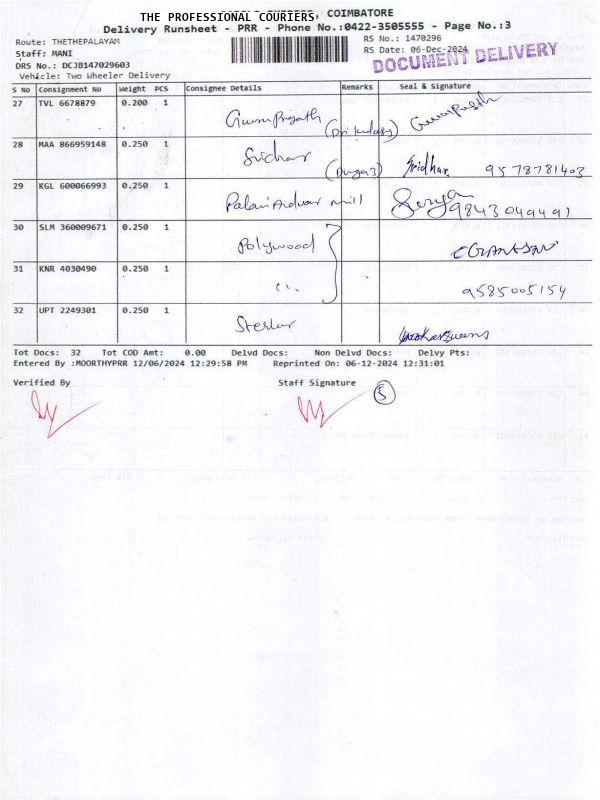 THE PROFESSIONAL COURIERS, COIMBATORE
Delivery Runsheet - PRR - Phone No.:0422-3505555 - Page No.:3
Route: THETHEPALAYAM
RS No.: 1470296
Staff: MANI
RS Date: 06-Dec-2024
DOCUMENT DELIVERY
DRS No.: DCJB147029603
Vehicle: Two Wheeler Delivery
S No Consignment No Weight PCS Consignee Details Remarks Seal & Signature
27 TVL 6678879 0.200 1
28 MAA 866959148 0.250 1 Sridhar Sridhar 9578781403
29 KGL 600066993 0.250 1 mill Surya 9843049491
30 SLM 360009671 0.250 1 Polywood
31 KNR 4030490 0.250 1 9585005154
32 UPT 2249301 0.250 1
Tot Docs: 32 Tot COD Amt: 0.00 Delvd Docs: Non Delvd Docs: Delvy Pts:
Entered By :MOORTHYPRR 12/06/2024 12:29:58 PM Reprinted On: 06-12-2024 12:31:01
Verified By Staff Signature 5